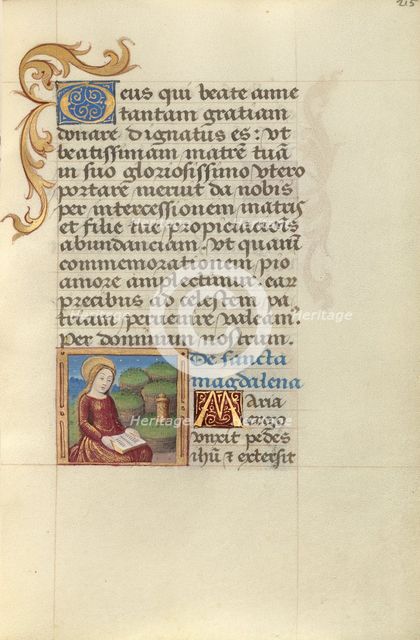 215
Deus qui beate anne
tantam gratiam
donare dignatus es: vt
beatissimam matrē tuā
in suo gloriosissimo vtero
portare meruit da nobis
per intercessionem matris
et filie tue propiciaciōis
abundanciam. vt quarū
commemorationem pio
amore amplectimur. ear
precibus ad celestem pa
triam peruenire valeam9.
Per dominum nostrum.
De sancta
magdalena
MAria
ergo
vnxit pedes
ihū ⁊ extersit
Heritage
Heritage
Heritage
Heritage
Heritage